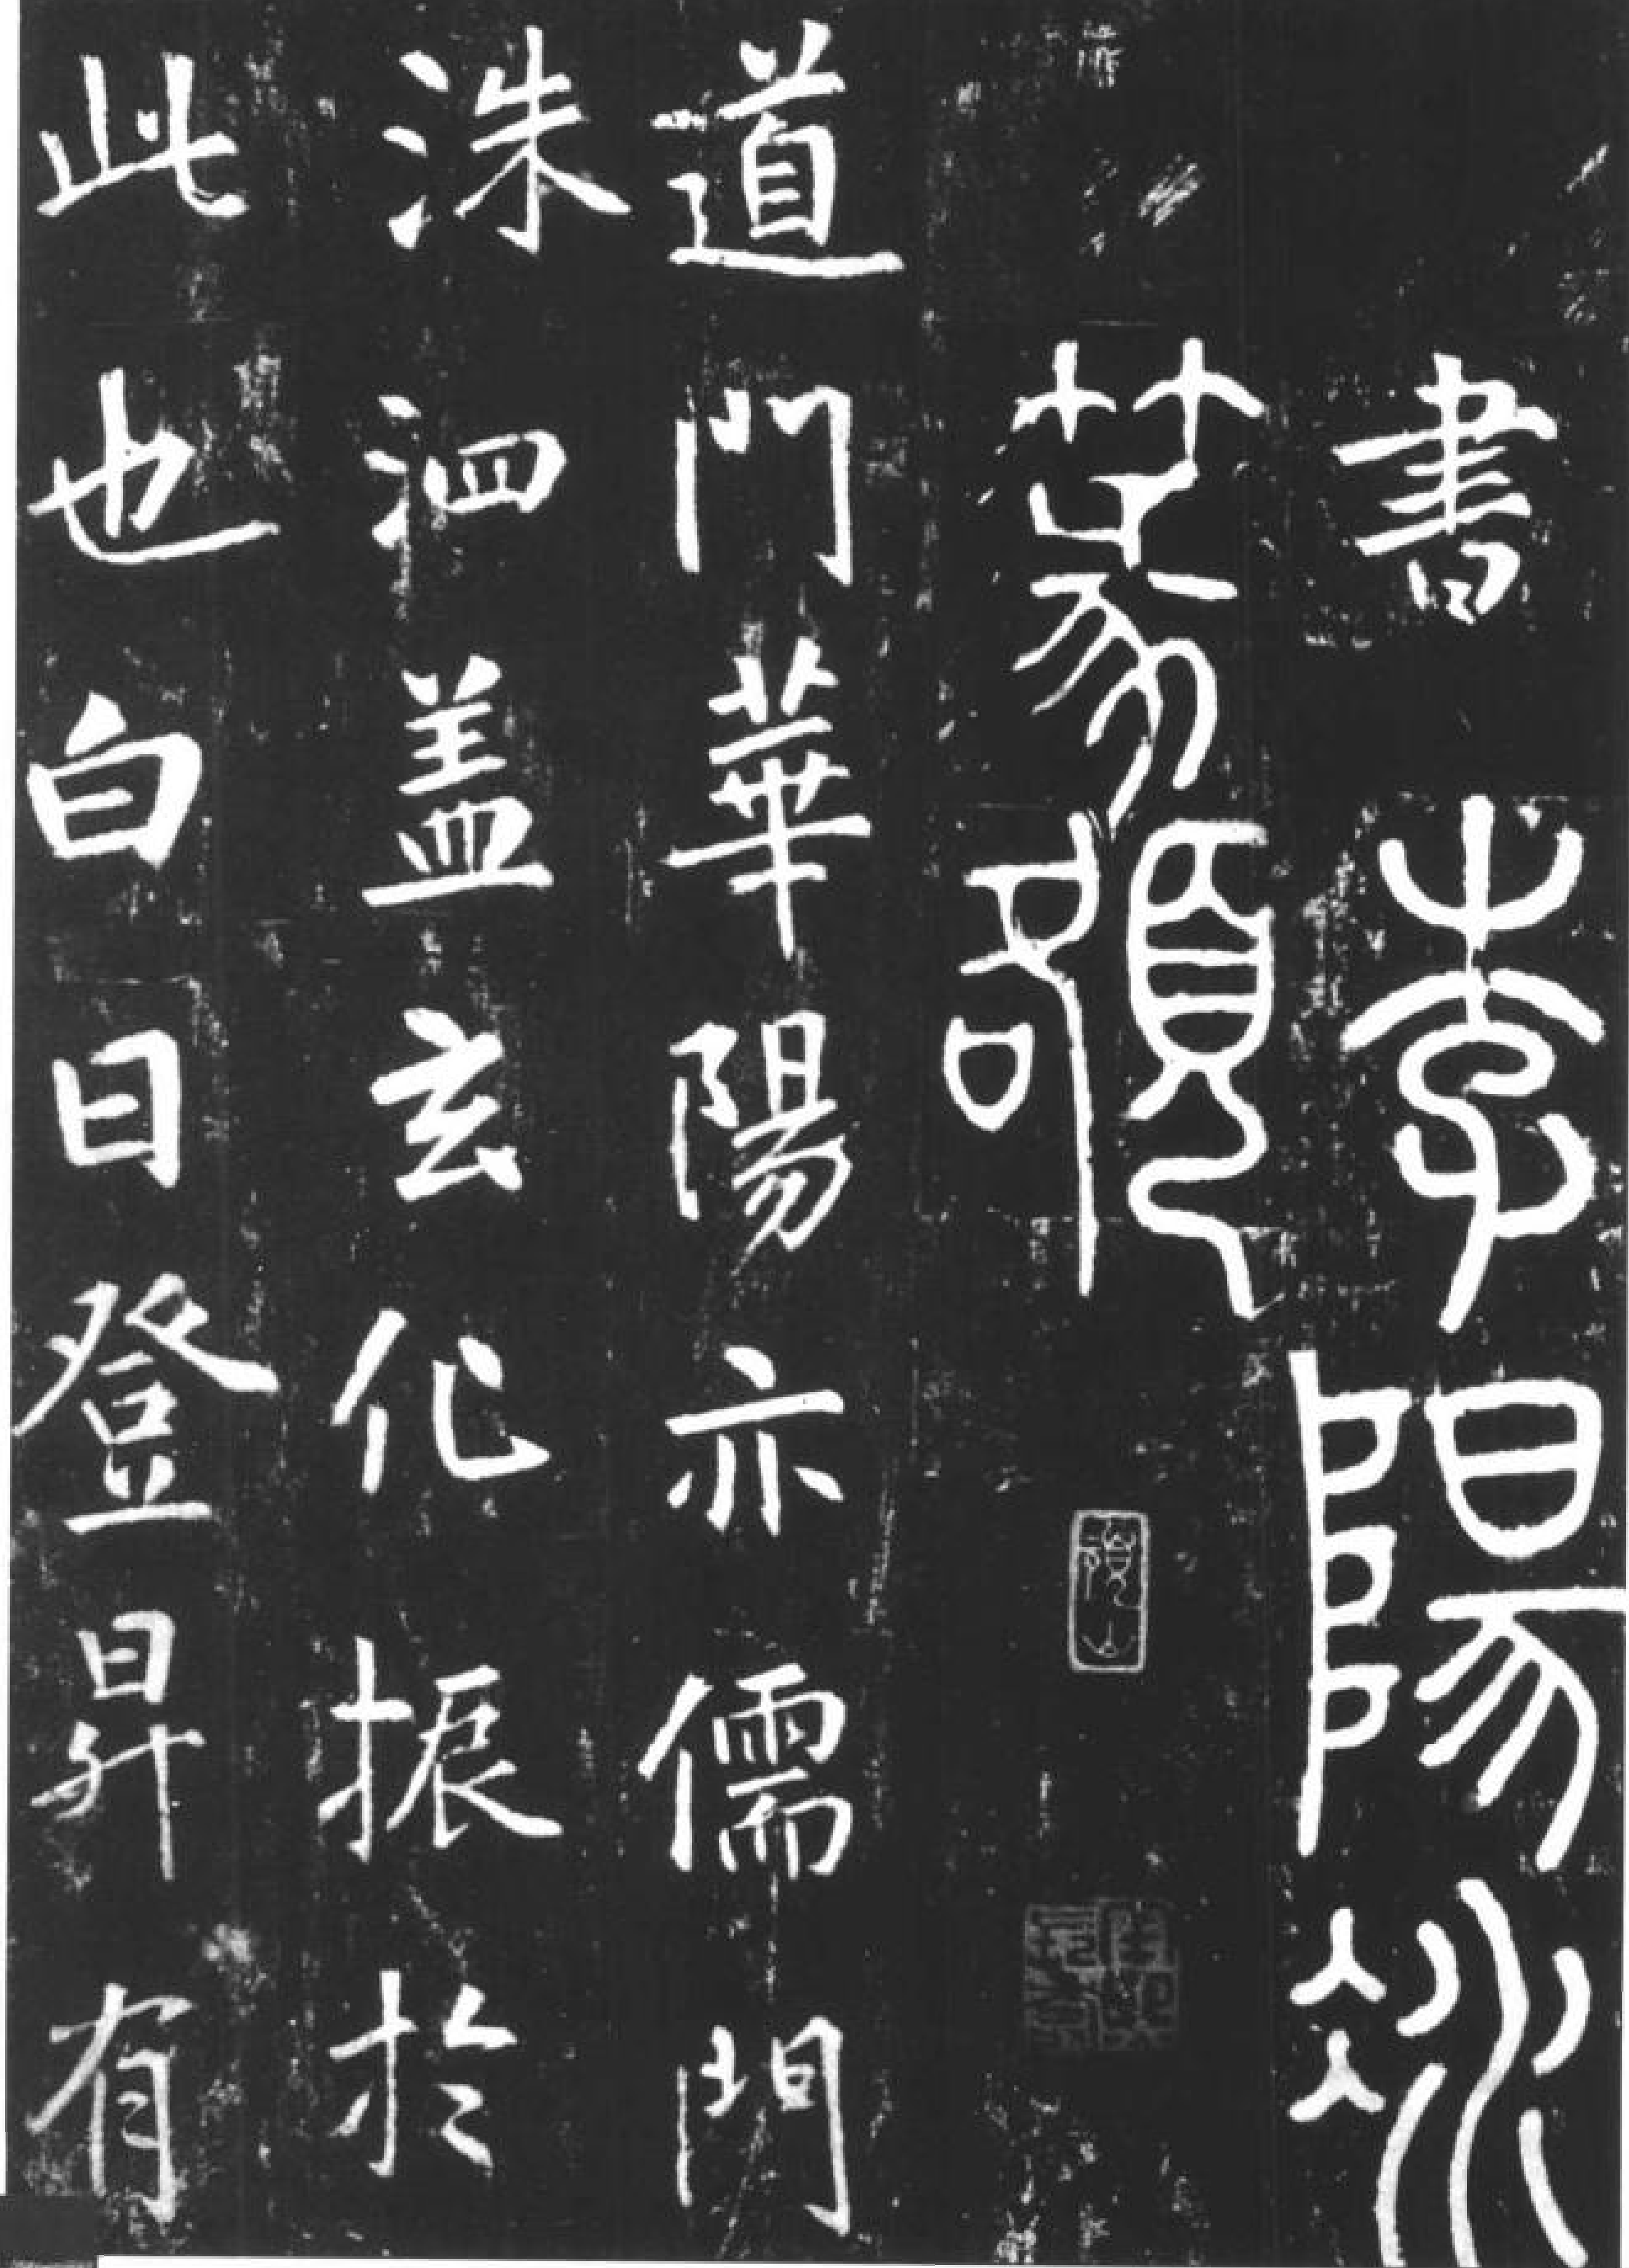 書李陽冰
篆額
道門華陽亦儒門
洙泗盖玄化振於
此也白日登昇有